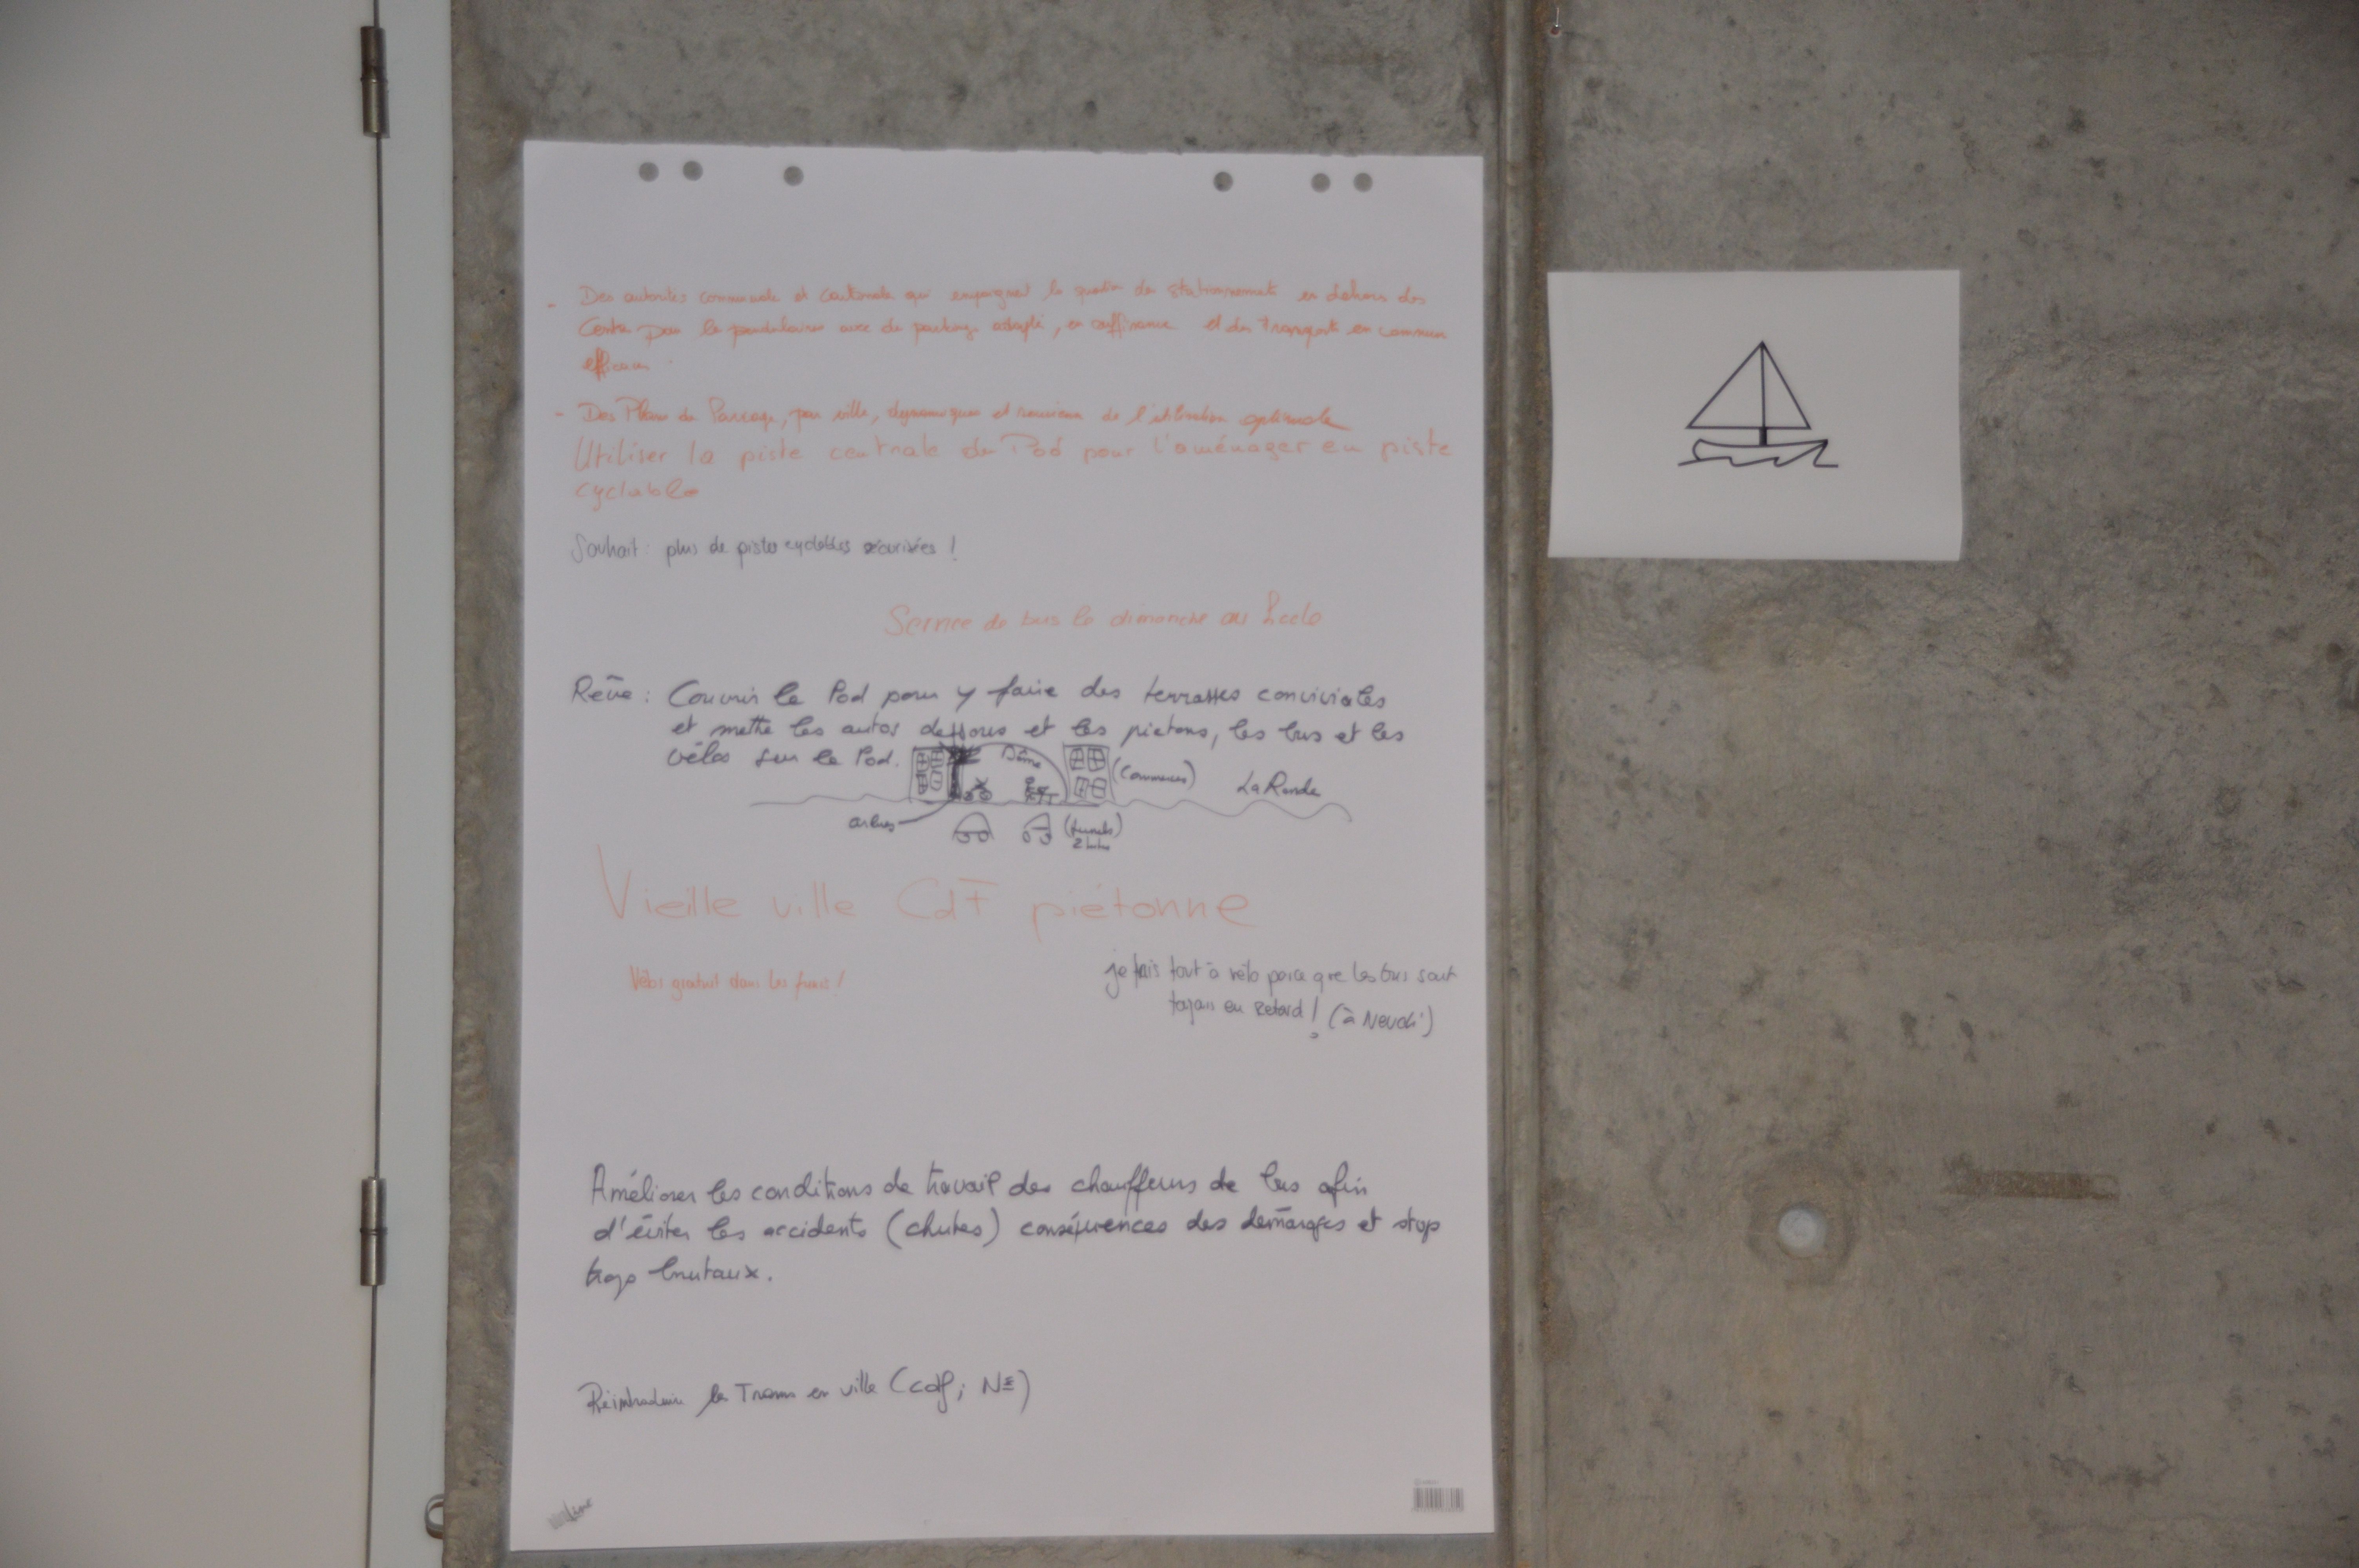 - Des autorités communale et cantonale qui empoignent la question du stationnement en dehors des
Centre pour les pendulaires avec des parkings adapté, en suffisance et des transports en commun
efficaces
- Des Plans de Parcage, par ville, dynamiques et de l'utilisation optimale
Utiliser la piste centrale du Pod pour l'aménager en piste
cyclable
Souhait : plus de pistes cyclables sécurisées !
Service de bus le dimanche au Locle
Rêve : Couvrir le Pod pour y faire des terrasses conviviales
et mettre les autos dessous et les pietons, les bus et les
vélos sur le Pod.
Dôme
(Commerces)
La Ronde
arbres
(tunnels)
Vieille ville CdF piétonne
Vélos gratuit dans les funis !
je fais tout à vélo parce que les bus sont
en retard ! (à Neuch')
Améliorer les conditions de travail des chauffeurs de bus afin
d'éviter les accidents (chutes) conséquences des démarrages et stop
trop brutaux.
Réintroduire le Tram en ville (cdf ; NE)